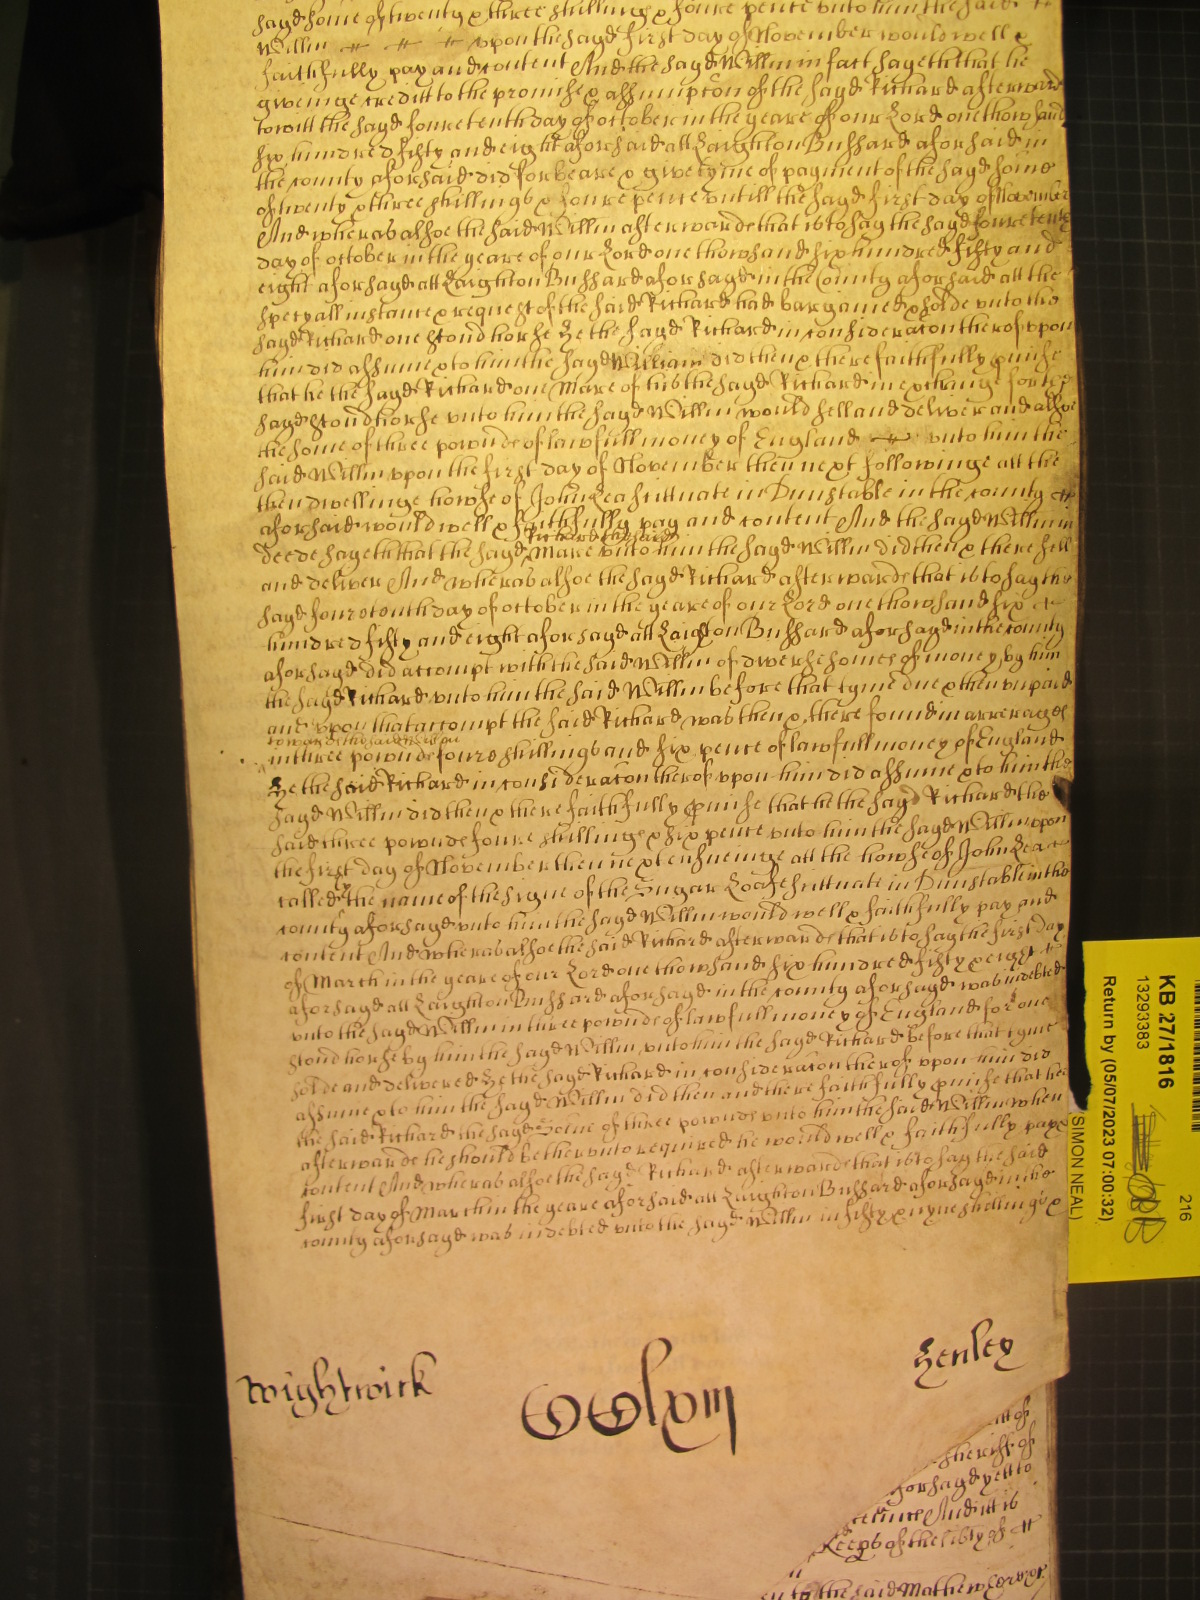 sayd some of twenty & three shillings & foure pence unto him the said
Willm upon the sayd first day of November would well &
faithfully pay and content And the sayd Willm in fact sayeth that he
giveinge creditt to the promise & assumpcon of the sayd Richard afterward
to witt the sayd fouretenth day of October in the yeare of our Lord one thowsand
six hundred fifty and eight aforsaid att Laighton Bussard aforsaid in
the county aforsaid did forbeare & give tyme of payment of the sayd some
of twenty & three shillings & foure pence untill the sayd first day of November
And wheras alsoe the said Willm afterwarde that is to say the sayd fouretenth
day of October in the yeare of our Lord one thowsand six hundred fifty and
eight aforsayd att Laighton Bussard aforsayd in the County aforsaid att the
speciall instance & request of the said Richard had bargained & solde unto the
sayd Richard one Stond horse He the sayd Richard in consideracon therof upon
him did assume & to him the sayd William did then & there faithfully pmise
that he the sayd Richard one Mare of his the sayd Richard in exchange for the
sayd Stond horse unto him the sayd Willm would sell and deliver and alsoe
the some of three pownde of lawfull money of England unto him the
said Willm upon the first day of November then next followinge att the
then dwellinge howse of John Lea scittuate in Dunstable in the county
aforsaid would well & faithfully pay and content And the sayd Willm in
Richard the said
deede sayeth that the sayd Mare unto him the sayd Willm did then & there sell
and deliver And wheras alsoe the sayd Richard afterwarde that is to say the
sayd fouretenth day of October in the yeare of our Lord one thowsand six
hundred fifty and eight aforsayd att Laighton Bussard aforsayd in the county
aforsayd did accompt with the said Willm of diverse somes of money by him
the sayd Richard unto him the said Willm before that tyme due & then unpaid
and upon that accompt the said Richard was then & there found in arrerages
towards the said Willm
in three pownde foure shillings and six pence of lawfull money of England
He the said Richard in consideracon therof upon him did assume & to him the
sayd Willm did then & there faithfully pmise that he the sayd Richard the
said three pownde foure shillings & six pence unto him the sayd Willm upon
the first day of November then next ensueinge att the howse of John Lea
called the name of the signe of the Sugar Loafe scittuate in Dunstable in the
county aforsayd unto him the sayd Willm would well & faithfully pay and
content And wheras alsoe the said Richard afterwarde that is to say the first day
of March in the yeare of our Lord one thowsand six hundred fifty & eight
aforsayd att Laighton Bussard aforsayd in the county aforsayd was indebted
unto the sayd Willm in three pownde of lawfull money of England for one
stond horse by him the sayd Willm unto him the sayd Richard before that tyme
solde and delivered He the sayd Richard in consideracon therof upon him did
assume & to him the sayd Willm did then and there faithfully pmise that hee
the said Richard the sayd Some of three pownde unto him the said Willm when
afterwarde he should be therunto required he would well & faithfully pay &
content And wheras alsoe the sayd Richard afterwarde that is to say the said
first day of March in the yeare aforsaid att Laighton Bussard aforsayd in the
county aforsayd was indebted unto the sayd Willm in fifty & nyne shillings &
Wightwick
Henley
sheriff of
aforsayd yett to
And itt is
Keeps of the libty of
the said Mathew
KB 27/1816
13293383
Return by (05/07/2023 07:00:32)
(SIMON NEAL)
216